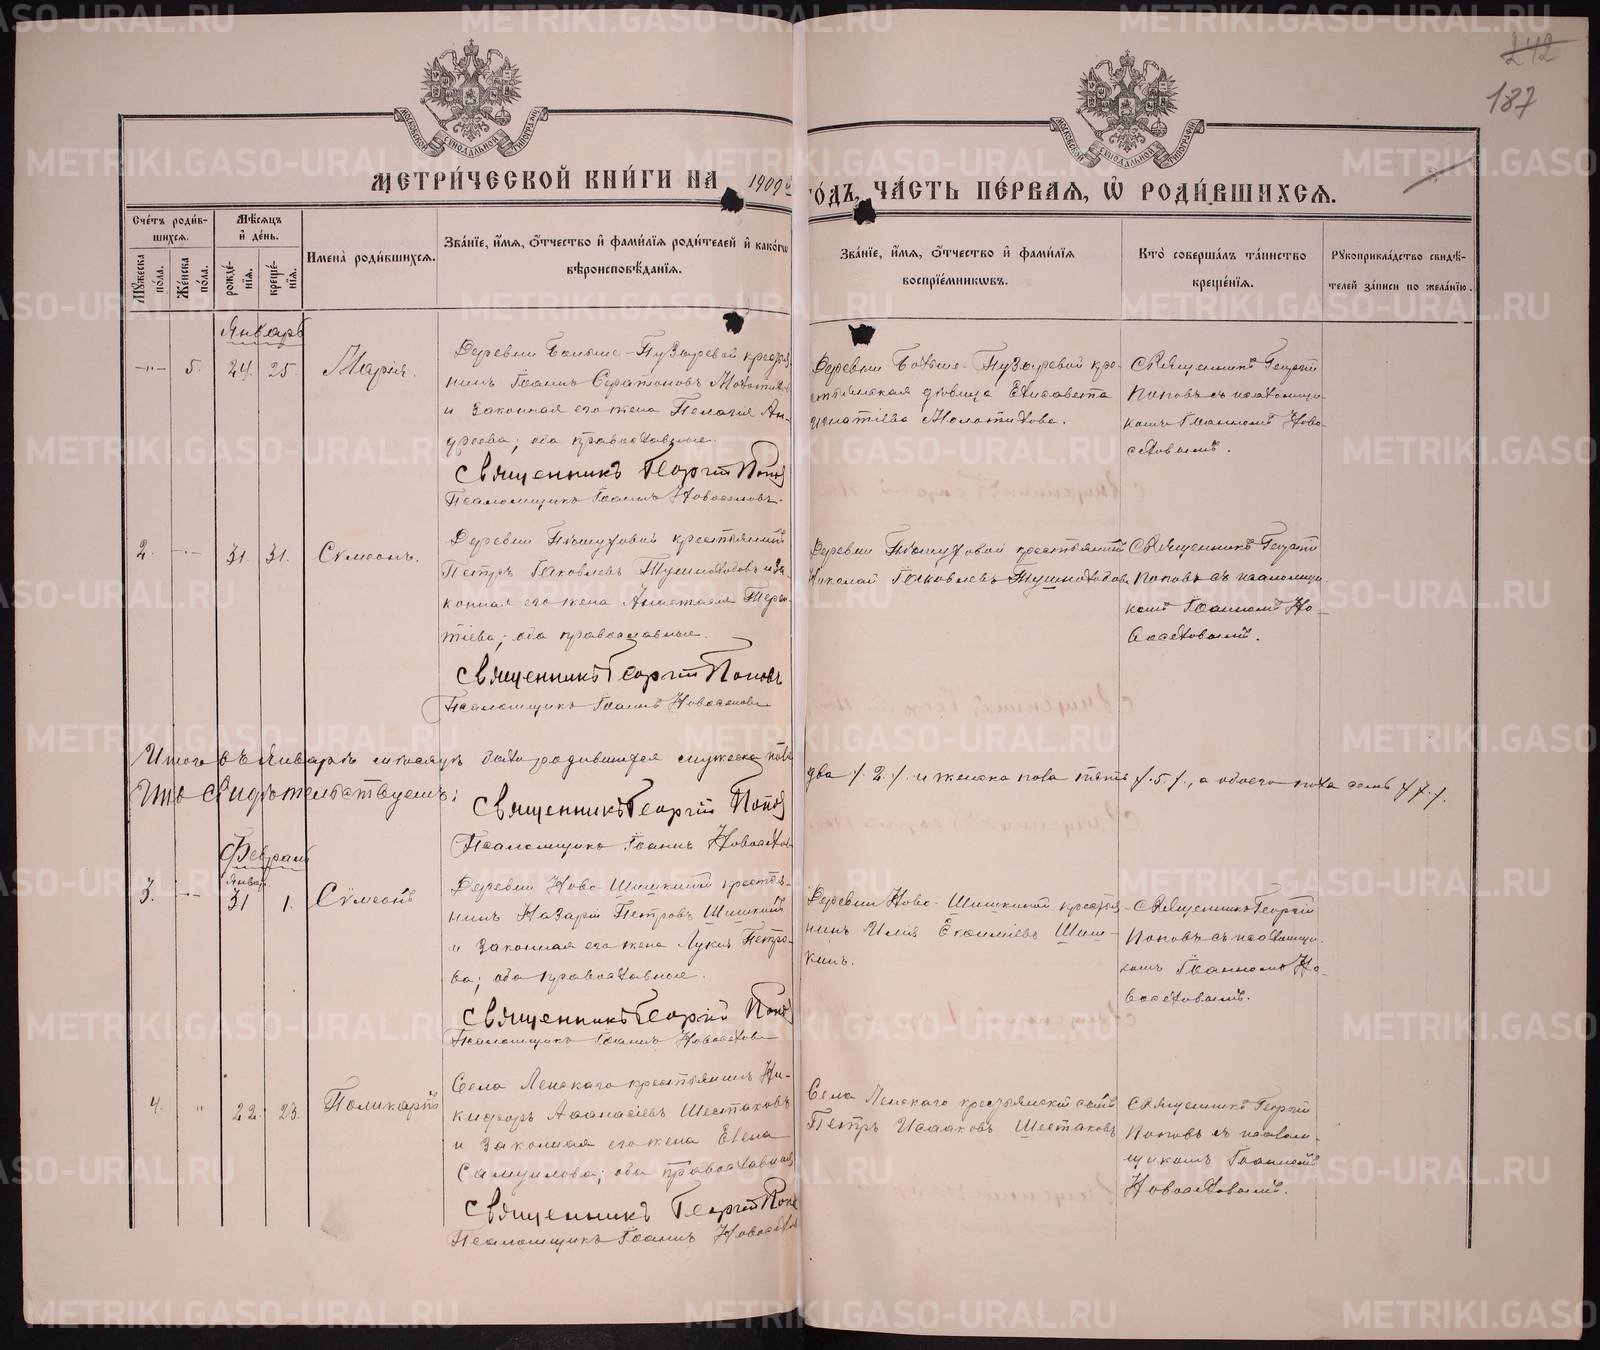 242
187
МОСКОВСКОЙ СѴНОДАЛЬНОЙ ТИПОГРАФІИ
МОСКОВСКОЙ СѴНОДАЛЬНОЙ ТИПОГРАФІИ
МЕТРИ́ЧЕСКОЙ КНИ́ГИ НА 1909й
ГО́ДЪ, ЧА́СТЬ ПЕ́РВАЯ, Ѡ РОДИ́ВШИХСЯ.
Сче́тъ роди́в-
шихся.
Мꙋ́жеска по́ла.
Же́нска по́ла.
Мѣ́сяцъ и де́нь.
рожде́-
нїя.
креще́-
нїя.
Имена̀ роди́вшихся.
Зва́нїе, и́мя, ѻ́тчество и фами́лїя роди́телей и како́гѡ
вѣроисповѣ́данїя.
Зва́нїе, и́мя, ѻ́тчество и фами́лїя
воспрїе́мникѡвъ.
Кто̀ соверша́лъ та́инство
креще́нїя.
Рꙋкоприкла́дство свидѣ́-
телей за́писи по жела́нїю.
Январь
5. 24. 25. Марія.
Деревни Больше-Пузыревой крестья-
нинъ Іоаннъ
и законная его жена Пелагія Ан-
дреева; оба православные.
Священникъ Георгій Попов
Псаломщикъ Іоаннъ Новоселовъ.
Деревни Больше-Пузыревой кре-
стьянская дѣвица Елисавета
Игнатіева Молотилова.
Священникъ Георгій
Поповъ съ псаломщи-
комъ Іоанномъ Ново-
селовымъ.
2. 31. 31. Сѵмеонъ.
Деревни крестьянинъ
Петръ Іаковлевъ Тушнолобовъ и за-
конная его жена Анастасія Терен-
тіева; оба православные.
Священникъ Георгій Поповъ
Псаломщикъ Іоаннъ Новоселовъ
Деревни крестьянинъ
Николай Іаковлевъ Тушнолобовъ.
Священникъ Георгій
Поповъ съ псаломщи-
комъ Іоанномъ Но-
воселовымъ.
Итого въ Январѣ мѣсяцѣ было родившихся мужеска пола
два /. 2. /. и женска пола пять /. 5. /., а обоего пола семь /. 7. /.
Что свидѣтельствуемъ:
Священникъ Георгій Попов
Псаломщикъ Іоаннъ Новоселов
Февраль
Январ.
3. 31 1. Сѵмеонъ
Деревни Ново-Шишкиной крестья-
нинъ Назарій Петровъ Шишкинъ
и законная его жена Лукія Петро-
ва; оба православные.
Священникъ Георгій Попов
Псаломщикъ Іоаннъ Новоселов
Деревни Ново-Шишкиной крестья-
нинъ Илія Екимовъ Шиш-
кинъ.
Священникъ Георгій
Поповъ съ псаломщи-
комъ Іоанномъ Но-
воселовымъ.
4. 22. 23. Поликарпъ
Села Ленскаго крестьянинъ Ни-
кифоръ Аѳанасіевъ Шестаковъ
и законная его жена Елена
Самуилова; оба православные
Священникъ Георгій Попов
Псаломщикъ Іоаннъ Новоселов
Села Ленскаго крестьянскій сынъ
Петръ Исааковъ Шестаковъ
Священникъ Георгій
Поповъ съ псалом-
щикомъ Іоанномъ
Новоселовымъ.
METRIKI.GASO-URAL.RU